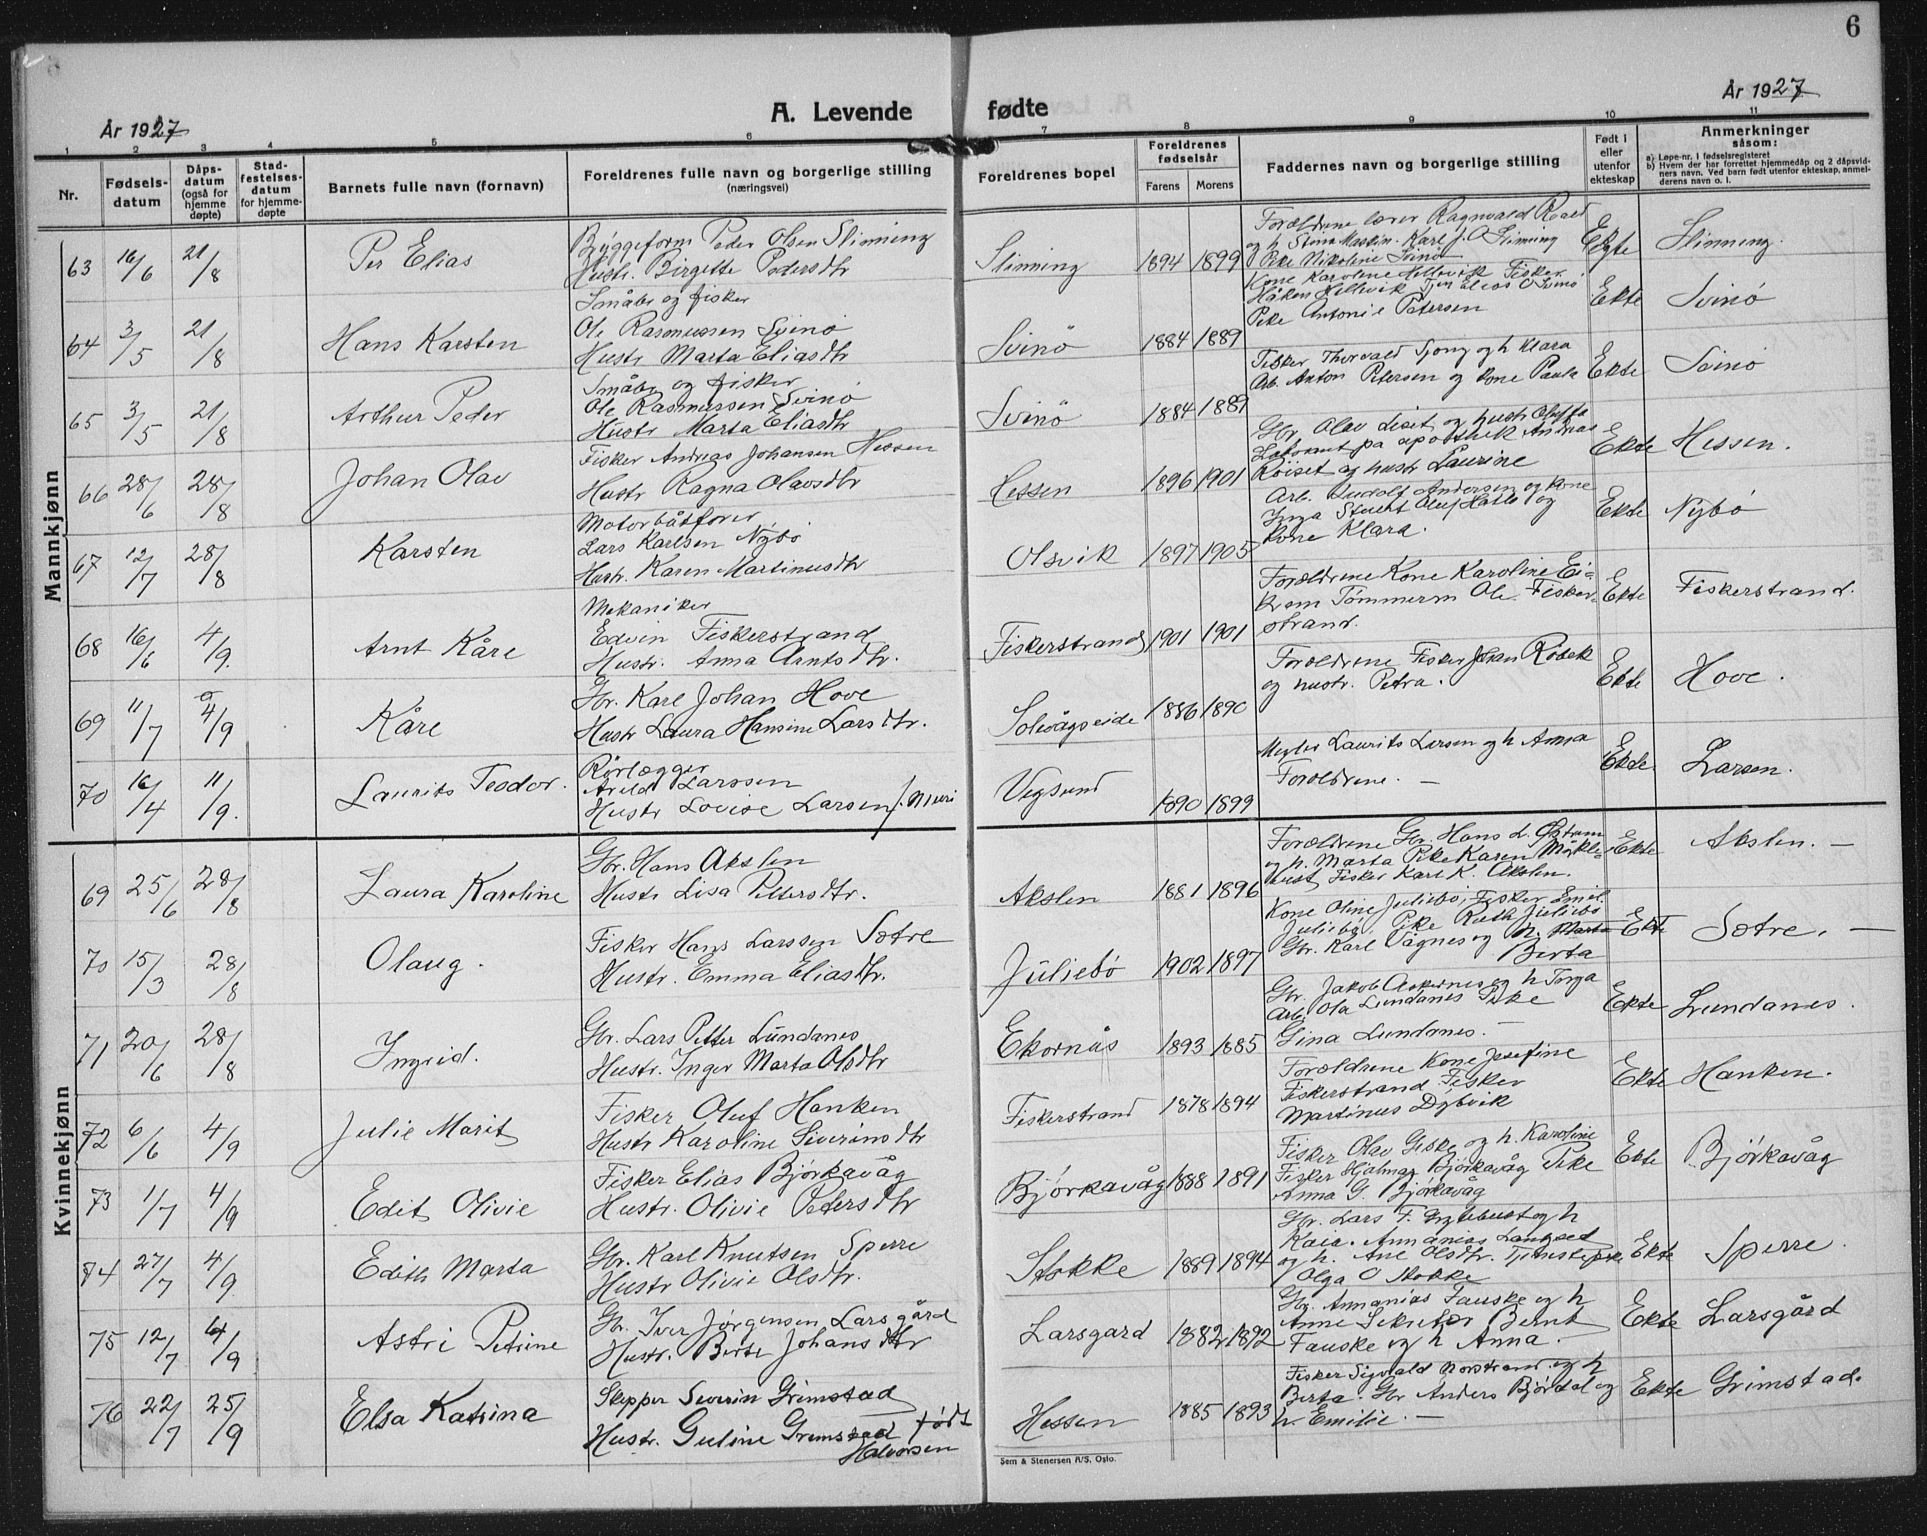 6
År 1927
A. Levende fødte
År 1927
1 2 3 4 5 6 7 8 9 10 11
Nr.
Fødsels-
datum
Dåps-
datum
(også for
hjemme
døpte)
Stad-
festelses-
datum
for hjemme-
døpte
Barnets fulle navn (fornavn)
Foreldrenes fulle navn og borgerlige stilling
(næringsvei)
Foreldrenes bopel
Foreldrenes
fødselsår
Farens Morens
Faddernes navn og borgerlige stilling
Født i
eller
utenfor
ekteskap
Anmerkninger
såsom:
a) Løpe-nr. i fødselsregisteret
b) Hvem der har forrettet hjemmedåp og 2 dåpsvid-
ners navn. Ved barn født utenfor ekteskap, anmel-
derens navn o. l.
Mannkjønn
63 16/6 21/8 Per Elias
Byggeform Peder Olsen Slinning
Hustr. Birgitte Pedersdtr
Slinning 1894 1899
Foreldrene lærer Ragnvald Roald
og h Stina Maskin. Karl J. O Slinning
Pike Nikoline Svinø
Ekte Slinning.
64 3/5 21/8 Hans Karsten
Småbr og fisker
Ole Rasmussen Svinø
Hustr Marta Eliasdtr
Svinø 1884 1889
Kone Karoline Hellevik Fisker
Håken Hellevik Tjen Elias O Svinø
Pike Antonie Petersen
Ekte Svinø
65 3/5 21/8 Arthur Peder
Småbr og fisker
Ole Rasmussen Svinø
Hustr Marta Eliasdtr
Svinø 1884 1889
Fisker Thorvald Sjong og h Klara
Arb. Anton Petersen og kone Paula
Ekte Svinø
66 28/6 28/8 Johan Olav
Fisker Andreas Johansen Hessen
Hustr Ragna Olavsdtr
Hessen 1896 1901
Gbr Olav og hustr Oluffa
på apothek Andreas
Røiset og hustr Laurine
Ekte Hessen.
67 12/7 28/8 Karsten
Motorbåtfører
Lars Karlsen Nybø
Hustr. Karen Martinusdtr
Olsvik 1897 1905
Arb. Rudolf Andersen og kone
Inga Oluf og
kone Klara.
Ekte Nybø
68 16/6 4/9. Arnt Kåre
Mekaniker
Edvin Fiskerstrand
Hustr. Anna Arntsdtr.
Fiskerstrand 1901 1901
Foreldrene Kone Karoline Ei-
krem Tömmerm Ole Fisker-
strand.
Ekte Fiskerstrand.
69 11/7 4/9 Kåre
Gbr. Karl Johan Hove
Hustr Laura Hansine Larsdtr.
Solevågseide 1886 1890
Foreldrene Fisker Johan Robek
og hustr. Petra.
Ekte Hove.
70 16/4 11/9. Laurits Teodor.
Rørlægger
Arild Larssen
Hustr Lovise Larsen f. Muri
Vegsund 1890 1899
Megler Laurits Larsen og h Anna
Foreldrene. —
Ekte Larsen.
Kvinnekjønn
69 25/6 28/8 Laura Karoline
Gbr. Hans Akslen
Hustr Lisa Pettersdtr.
Akslen 1881 1896
Foreldrene Gbr. Hans L. Østrem
og h. Marta Pike Karen Måkle-
bust Fisker Karl K. Akslen.
Ekte Akslen. —
70 15/3 28/8 Olaug.
Fisker Hans Larssen Sætre
Hustr. Emma Eliasdtr.
Juliebø 1902 1897
Kone Oline Juliebø, Fisker Emil
Juliebø Pike Ruth Juliebø
Gbr. Karl Vågnes og h. Marta
Berta
Ekte Sætre. —
71 20/6 28/8 Ingrid.
Gbr. Lars Petter Lundanes
Hustr. Inger Marta Olsdtr
Ekornås 1893 1885
Gbr. Jakob Aakernes og h Torga
Arb. Ola Lundanes Pike
Gina Lundanes. —
Ekte Lundanes.
72 6/6 4/9 Julie Marit
Fisker Oluf Hanken
Hustr Karoline Siverinsdtr
Fiskerstrand 1878 1894
Foreldrene Kone Josefine
Fiskerstrand Fisker
Martinus Dybvik
Ekte Hanken.
73 1/7 4/9 Edit Olivie
Fisker Elias Bjørkavåg
Hustr. Olivie Petersdtr
Bjørkavåg 1888 1891
Fisker Olav Giske og h. Karoline
Fisker Hjalmar Bjørkavåg Pike
Anna G. Bjørkavåg
Ekte Bjørkavåg
74 27/7 4/9 Edith Marta
Gbr. Karl Knutsen Sperre
Hustr Olivie Olsdtr.
Stokke 1889 1894
Gbr. Lars F. Grytebust og h
Kaia. Annanias Langset
og h. Ane Olsdtr. Tjenstepike
Olga O Stokke
Ekte Sperre.
75 12/7 4/9 Astri Petrine
Gbr. Iver Jørgensen Larsgård
Hustr. Berte Johansdtr
Larsgard 1882 1892
Gbr. Annanias Fauske og h
Anne Sekretær Bernt
Fauske og h Anna.
Ekte Larsgård
76 22/7 25/9 Elsa Katrina
Skipper Severin Grimstad
Hustr. Guline Grimstad født
Halvorsen
Hessen 1885 1893
Fisker Sigvald Norstrand og h
Berta. Gbr Anders Bjørdal og
h. Emilie. —
Ekte Grimstad.
Sem & Stenersen A/S, Oslo.